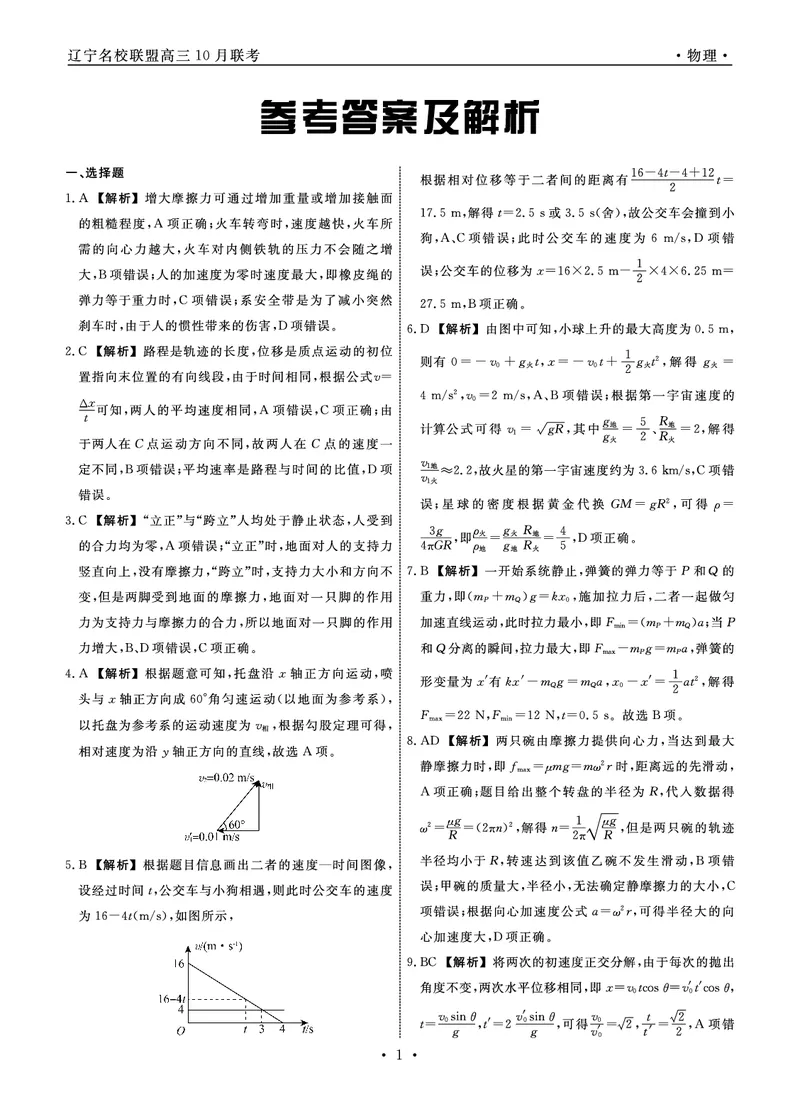 辽宁名校联盟高三10月联考 ·物理·
参考答案及解析
一、选择题
1.A 【解析】增大摩擦力可通过增加重量或增加接触面
的粗糙程度,A项正确;火车转弯时,速度越快,火车所
需的向心力越大,火车对内侧铁轨的压力不会随之增
大,B项错误;人的加速度为零时速度最大,即橡皮绳的
弹力等于重力时,C项错误;系安全带是为了减小突然
刹车时,由于人的惯性带来的伤害,D项错误。
2.C 【解析】路程是轨迹的长度,位移是质点运动的初位
置指向末位置的有向线段,由于时间相同,根据公式v=
Δx/t可知,两人的平均速度相同,A项错误,C项正确;由
于两人在C点运动方向不同,故两人在C点的速度一
定不同,B项错误;平均速率是路程与时间的比值,D项
错误。
3.C 【解析】“立正”与“跨立”人均处于静止状态,人受到
的合力均为零,A项错误;“立正”时,地面对人的支持力
竖直向上,没有摩擦力,“跨立”时,支持力大小和方向不
变,但是两脚受到地面的摩擦力,地面对一只脚的作用
力为支持力与摩擦力的合力,所以地面对一只脚的作用
力增大,B、D项错误,C项正确。
4.A 【解析】根据题意可知,托盘沿x轴正方向运动,喷
头与x轴正方向成60°角匀速运动(以地面为参考系),
以托盘为参考系的运动速度为v相,根据勾股定理可得,
相对速度为沿y轴正方向的直线,故选A项。
v₂=0.02 m/s
v相
60°
v₁′=0.01 m/s
5.B 【解析】根据题目信息画出二者的速度—时间图像,
设经过时间t,公交车与小狗相遇,则此时公交车的速度
为16-4t(m/s),如图所示,
v/(m·s⁻¹)
16
16-4t
4
O t 3 4 t/s
根据相对位移等于二者间的距离有(16-4t-4+12)/2 t=
17.5 m,解得t=2.5 s或3.5 s(舍),故公交车会撞到小
狗,A、C项错误;此时公交车的速度为6 m/s,D项错
误;公交车的位移为x=16×2.5 m-1/2×4×6.25 m=
27.5 m,B项正确。
6.D 【解析】由图中可知,小球上升的最大高度为0.5 m,
则有0=-v₀+g火t,x=-v₀t+1/2g火t²,解得g火=
4 m/s²,v₀=2 m/s,A、B项错误;根据第一宇宙速度的
计算公式可得v₁=√gR,其中g地/g火=5/2、R地/R火=2,解得
v₁地/v₁火≈2.2,故火星的第一宇宙速度约为3.6 km/s,C项错
误;星球的密度根据黄金代换GM=gR²,可得ρ=
3g/4πGR,即ρ火/ρ地=g火/g地 R地/R火=4/5,D项正确。
7.B 【解析】一开始系统静止,弹簧的弹力等于P和Q的
重力,即(mP+mQ)g=kx₀,施加拉力后,二者一起做匀
加速直线运动,此时拉力最小,即Fmin=(mP+mQ)a;当P
和Q分离的瞬间,拉力最大,即Fmax-mPg=mPa,弹簧的
形变量为x′有kx′-mQg=mQa,x₀-x′=1/2at²,解得
Fmax=22 N,Fmin=12 N,t=0.5 s。故选B项。
8.AD 【解析】两只碗由摩擦力提供向心力,当达到最大
静摩擦力时,即fmax=μmg=mω²r时,距离远的先滑动,
A项正确;题目给出整个转盘的半径为R,代入数据得
ω²=μg/R=(2πn)²,解得n=1/2π√(μg/R),但是两只碗的轨迹
半径均小于R,转速达到该值乙碗不发生滑动,B项错
误;甲碗的质量大,半径小,无法确定静摩擦力的大小,C
项错误;根据向心加速度公式a=ω²r,可得半径大的向
心加速度大,D项正确。
9.BC 【解析】将两次的初速度正交分解,由于每次的抛出
角度不变,两次水平位移相同,即x=v₀tcos θ=v₀′t′cos θ,
t=v₀sin θ/g,t′=2 v₀′sin θ/g,可得v₀/v₀′=√2,t/t′=√2/2,A项错
· 1 ·